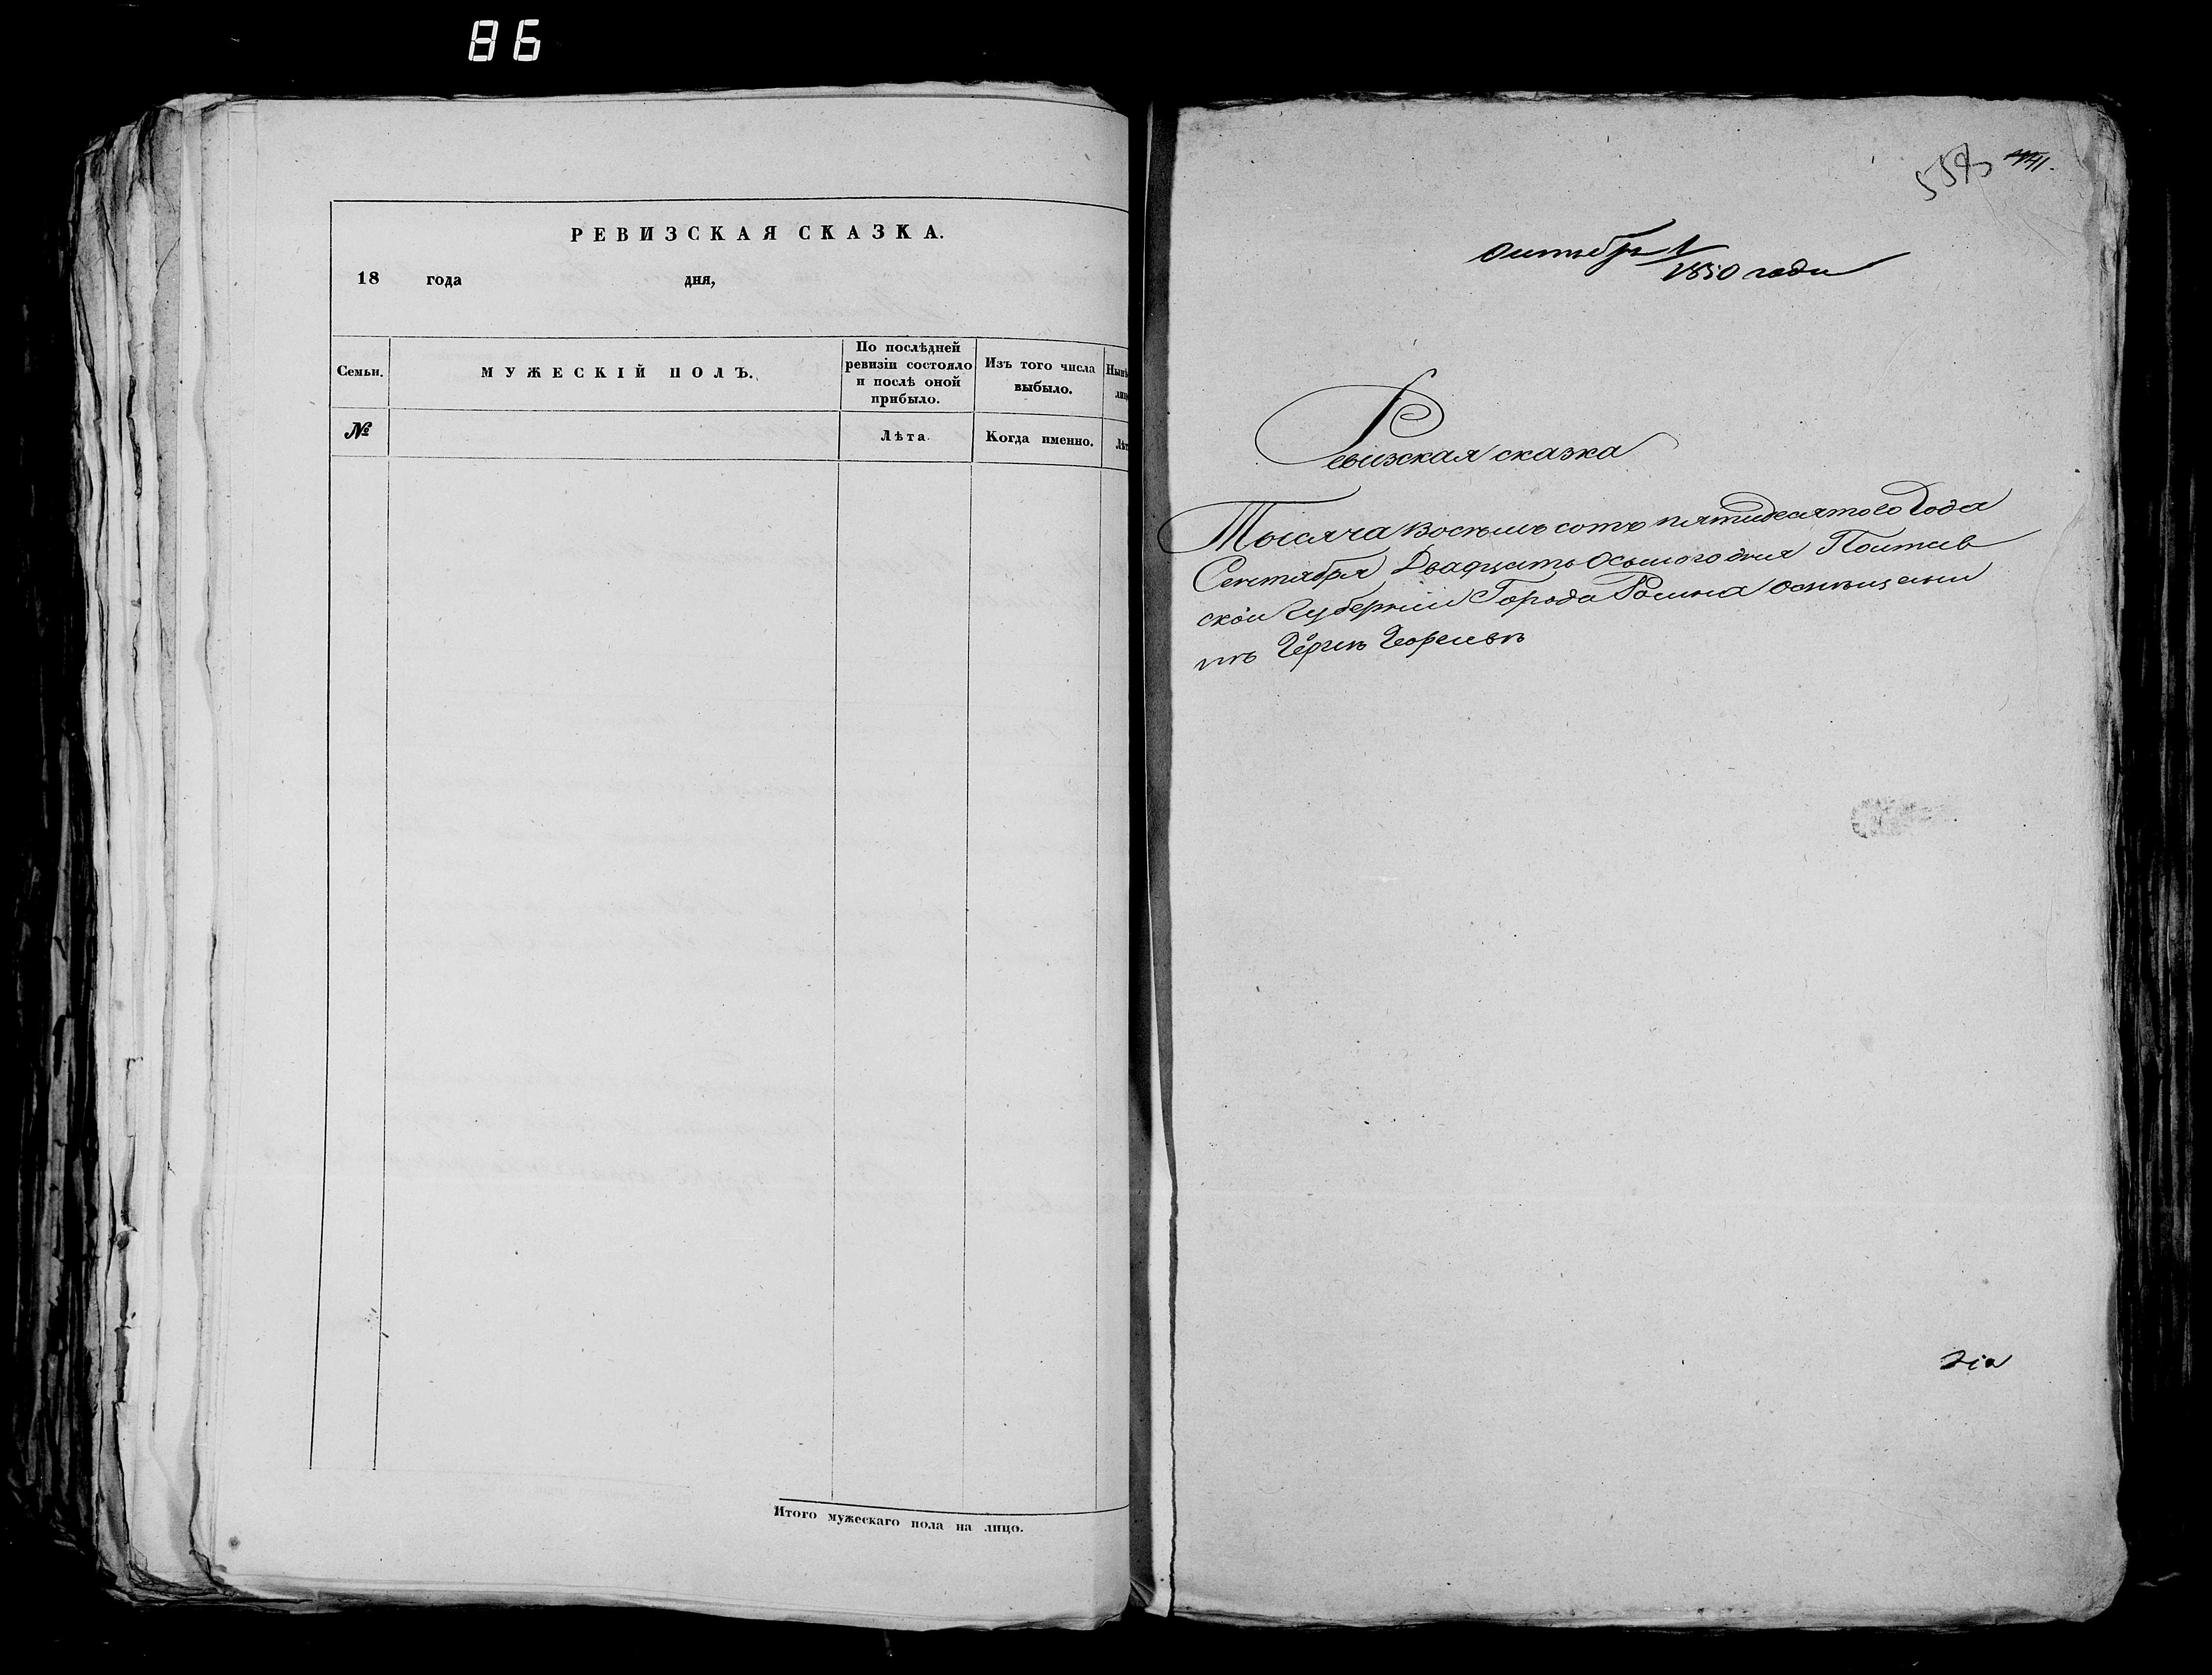 86
РЕВИЗСКАЯ СКАЗКА.
18 года дня,
Семьи.
МУЖЕСКІЙ ПОЛЪ.
По послѣдней
ревизіи состояло
и послѣ оной
прибыло.
Изъ того числа
выбыло.
№
Лѣта.
Когда именно.
Итого мужескаго пола на лицо.
октября 1
1850 года
Ревизская сказка
Тысяча восемь сотъ пятидесятого Года
Сентября Двадцать осьмого дня Полтав
ской Губерніи Города Ромна